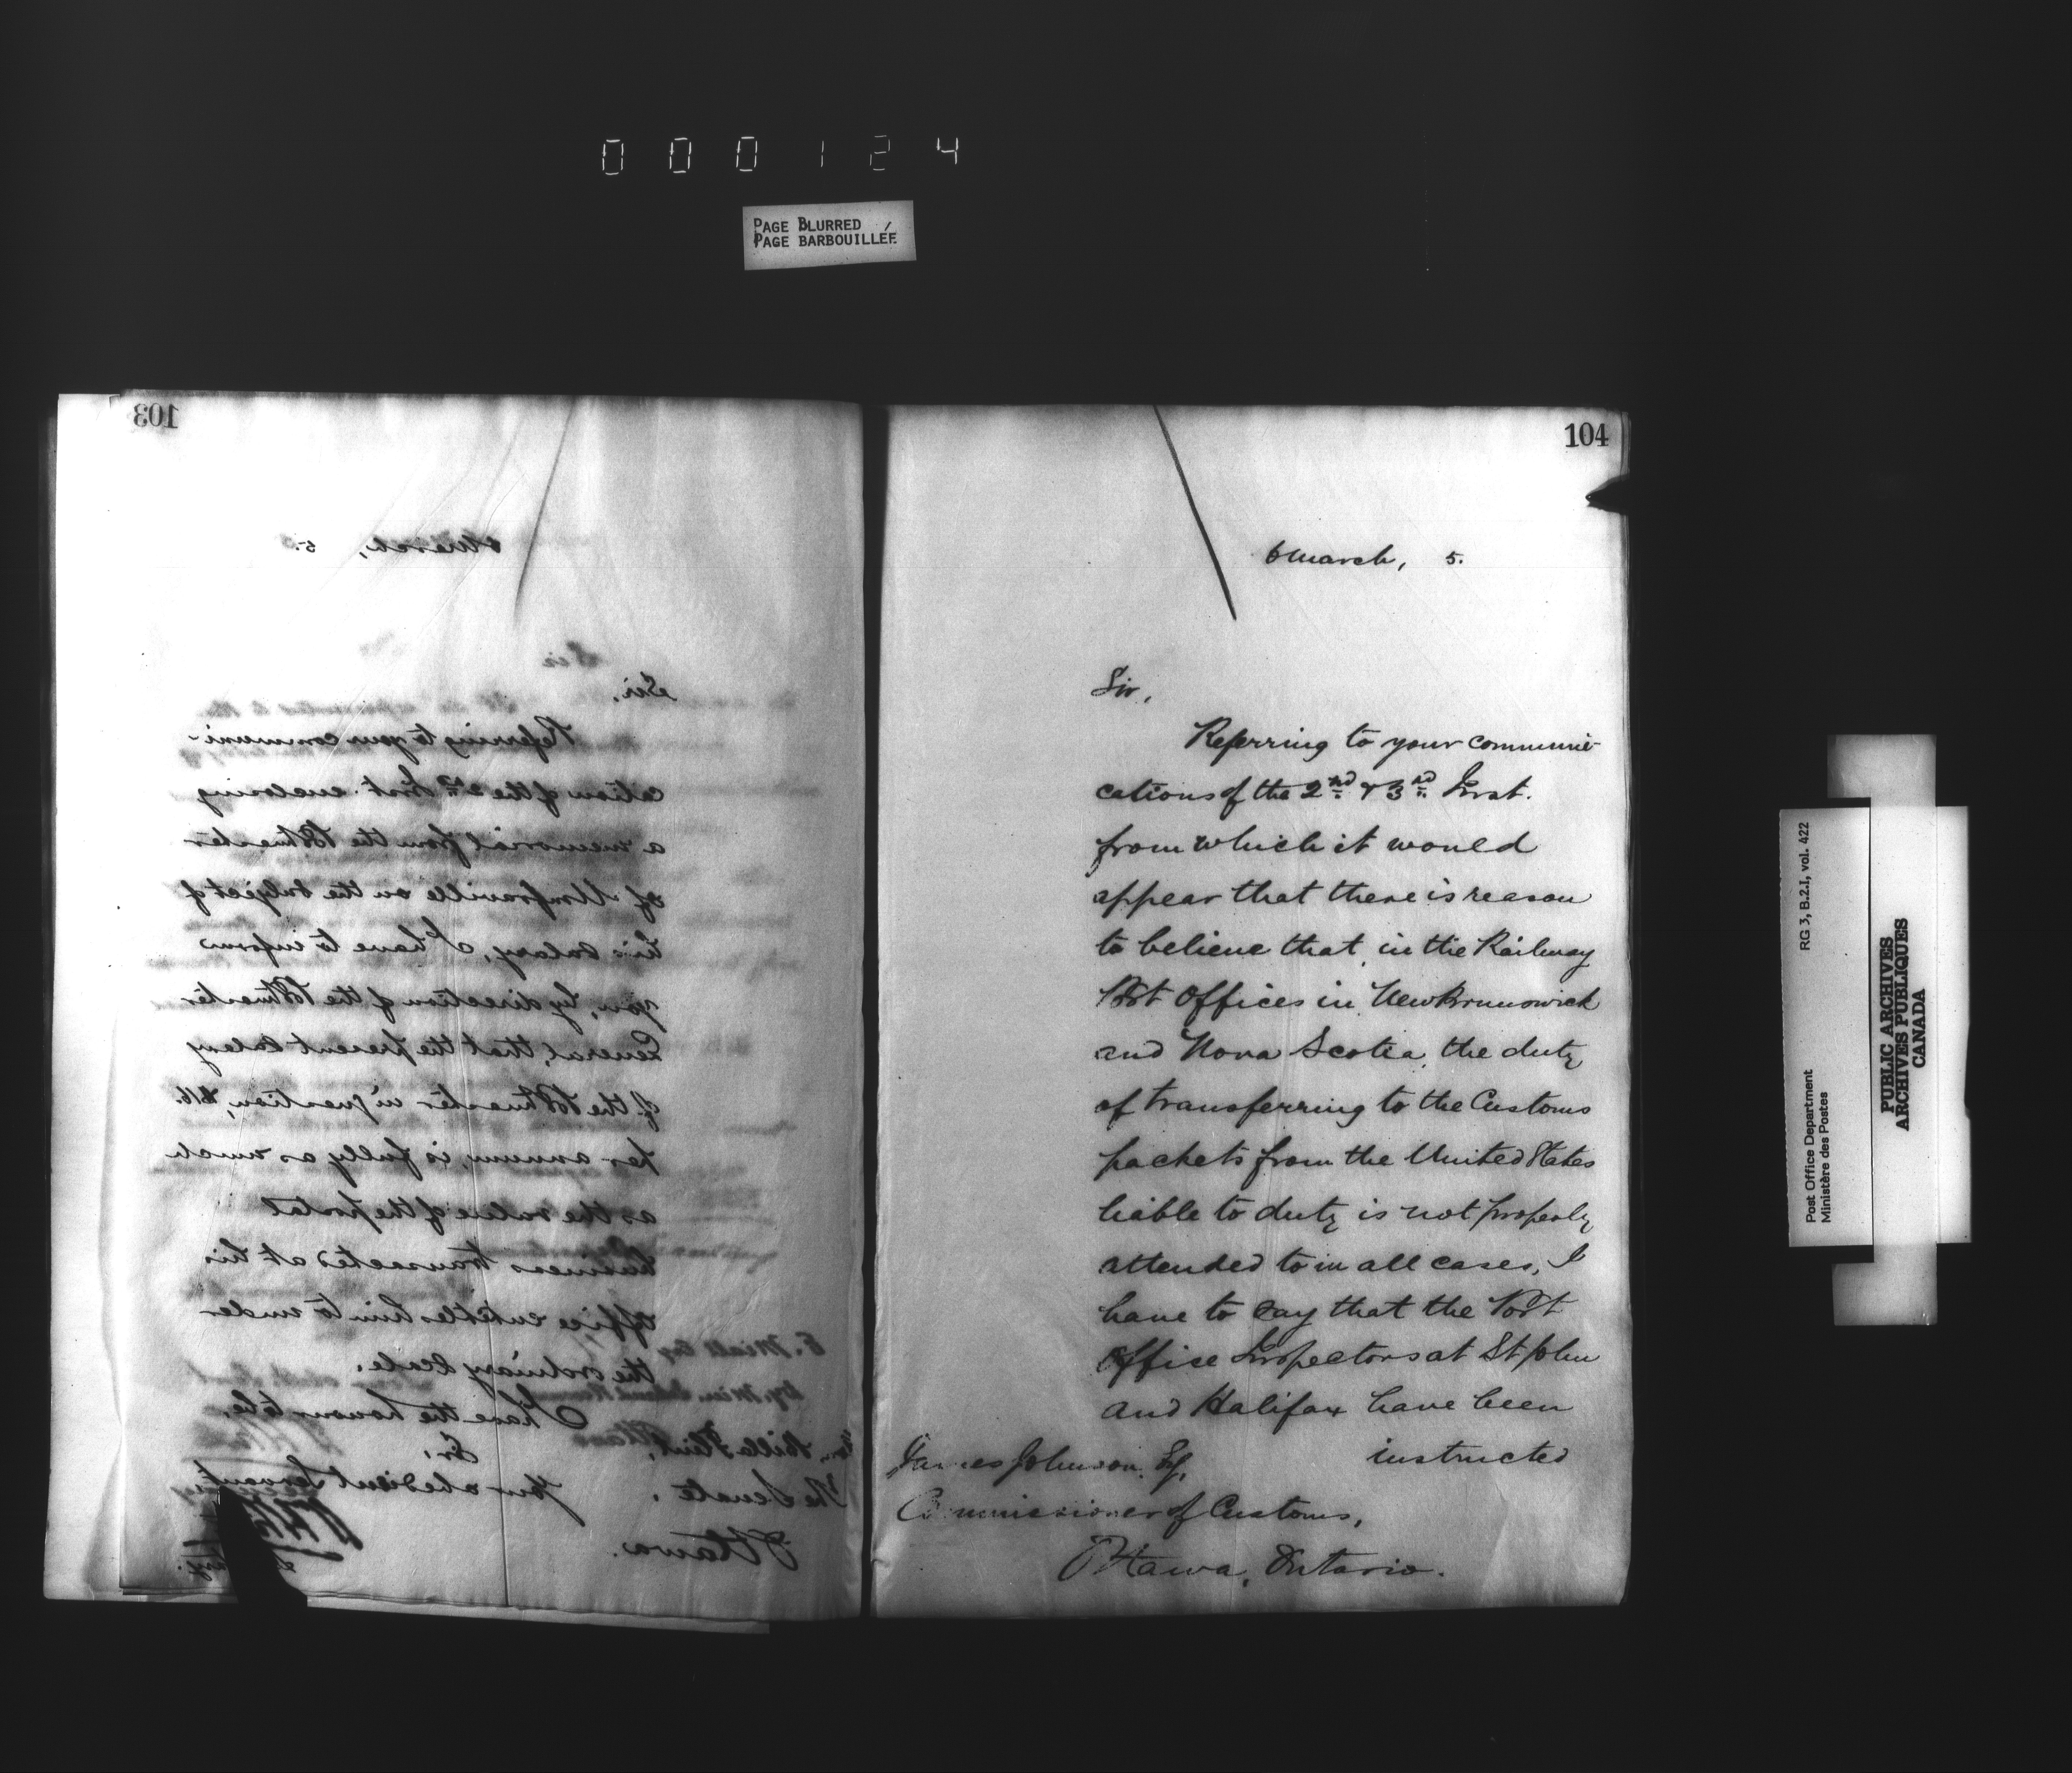 000124
PAGE BLURRED
PAGE BARBOUILLÉE
103
March, 5.
Sir,
Referring to your communi-
cation of the Inst. enclosing
a memorial from the Postmaster
of Umfraville on the subject of
his salary, I have to inform
you, by direction of the Postmaster
General, that the present salary
of the Postmaster in question, $16.
per annum, is fully as much
as the value of the postal
business transacted at his
office entitles him to under
the ordinary scale.
I have the honour to be,
Sir,
Your obedient Servant
Billa Flint,
The Senate,
Ottawa.
104
March, 5.
Sir,
Referring to your communi-
cations of the 2nd & 3rd Inst.
from which it would
appear that there is reason
to believe that, in the Railway
Post Offices in New Brunswick
and Nova Scotia, the duty
of transferring to the Customs
packets from the United States
liable to duty is not properly
attended to in all cases, I
have to say that the Post
Office Inspectors at St John
and Halifax have been
instructed
James Johnson, Esq,
Commissioner of Customs,
Ottawa, Ontario.
RG 3, B.2.I, vol. 422
Post Office Department
Ministère des Postes
PUBLIC ARCHIVES
ARCHIVES PUBLIQUES
CANADA